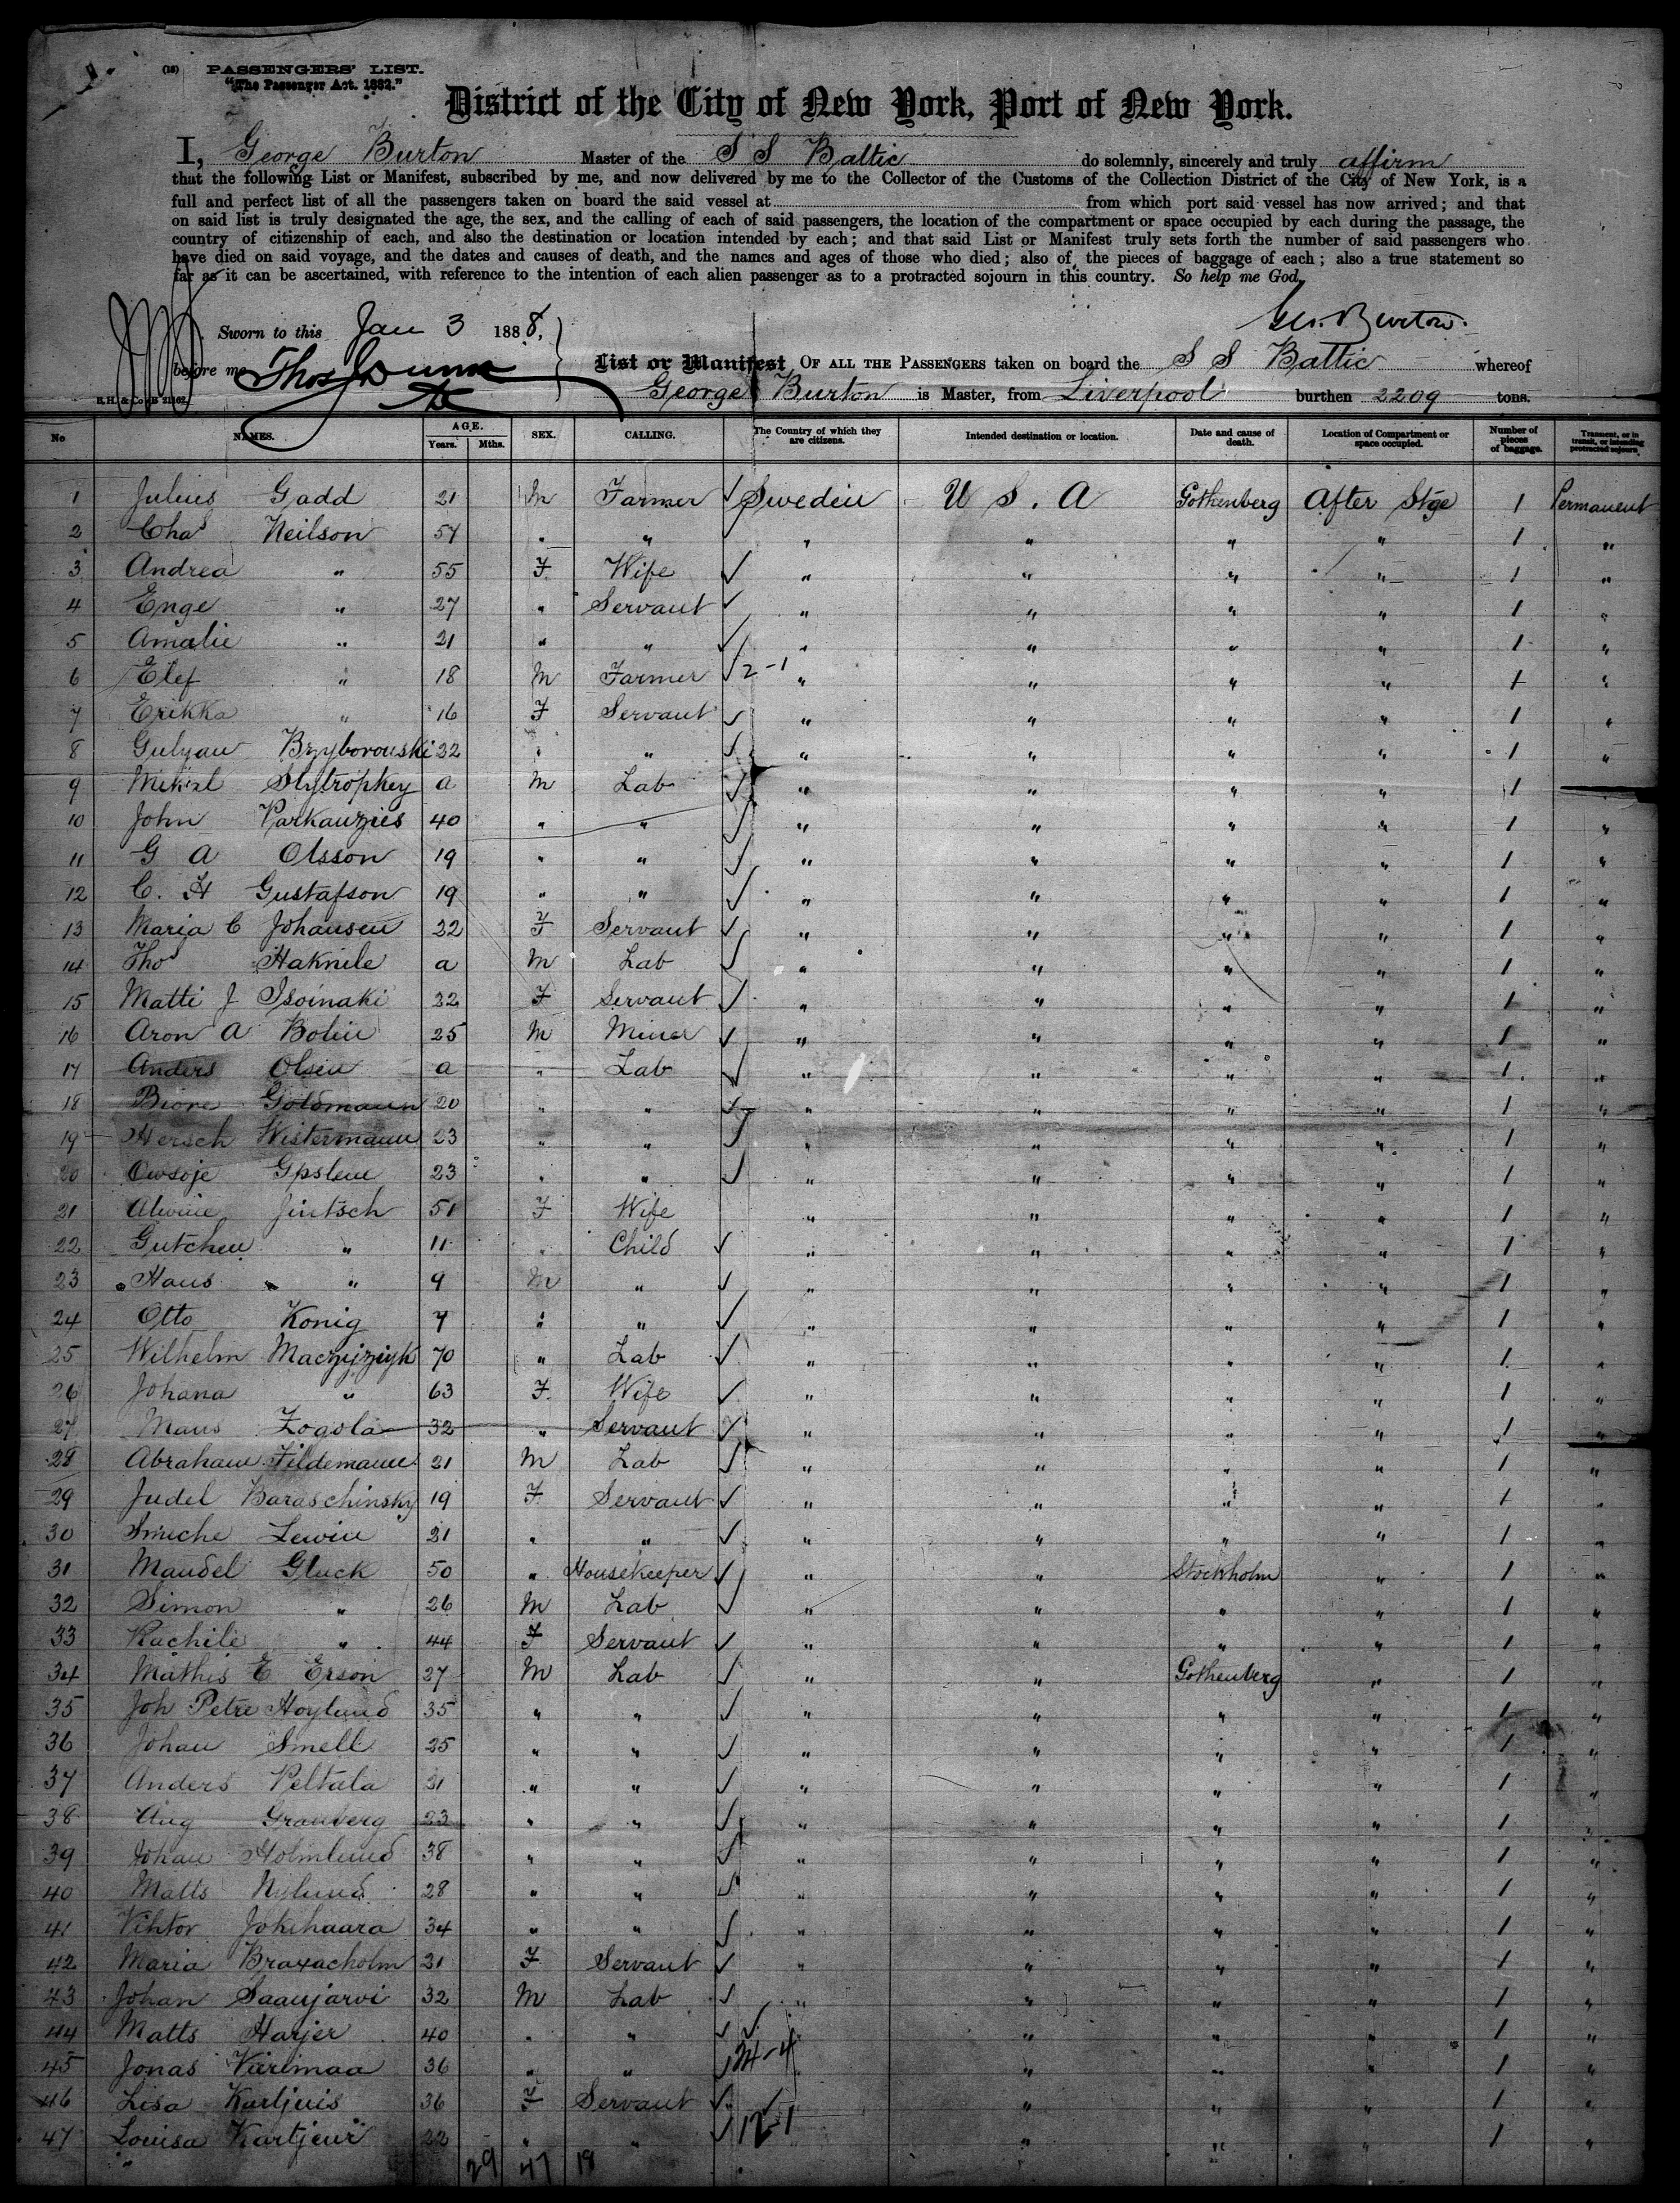 (18) PASSENGERS' LIST.
"The Passenger Act. 1882."
District of the City of New York, Port of New York.
I, George Burton Master of the S S Baltic do solemnly, sincerely and truly affirm
that the following List or Manifest, subscribed by me, and now delivered by me to the Collector of the Customs of the Collection District of the City of New York, is a
full and perfect list of all the passengers taken on board the said vessel at from which port said vessel has now arrived; and that
on said list is truly designated the age, the sex, and the calling of each of said passengers, the location of the compartment or space occupied by each during the passage, the
country of citizenship of each, and also the destination or location intended by each; and that said List or Manifest truly sets forth the number of said passengers who
have died on said voyage, and the dates and causes of death, and the names and ages of those who died; also of the pieces of baggage of each; also a true statement so
far as it can be ascertained, with reference to the intention of each alien passenger as to a protracted sojourn in this country. So help me God.
Geo. Burton.
Sworn to this Jan 3 1888,
before me Thos Dunn
List or Manifest OF ALL THE PASSENGERS taken on board the S S Baltic whereof
George Burton is Master, from Liverpool burthen 2209 tons.
No NAMES. AGE. Years. Mths. SEX. CALLING. The Country of which they are citizens. Intended destination or location. Date and cause of death. Location of Compartment or space occupied. Number of pieces of baggage. Transient, or in transit, or intending protracted sojourn
1 Julius Gadd 21 M Farmer ✓ Sweden U S. A Gothenberg After Stge 1 Permanent
2 Chas Neilson 57 " " ✓ " " " " 1 "
3 Andrea " 55 F Wife ✓ " " " " 1 "
4 Enge " 27 " Servant ✓ " " " " 1 "
5 Amalie " 21 " " ✓ " " " " 1 "
6 Elef " 18 M Farmer ✓ 2-1 " " " " 1 "
7 Erikka " 16 F Servant ✓ " " " " 1 "
8 Gulyau Bzyborouski 22 " " ✓ " " " " 1 "
9 Mikal Slytrophey a M Lab ✓ " " " " 1 "
10 John Parkauzies 40 " " ✓ " " " " 1 "
11 G A Olsson 19 " " ✓ " " " " 1 "
12 C. H Gustafson 19 " " ✓ " " " " 1 "
13 Maria C Johansen 22 F Servant ✓ " " " " 1 "
14 Tho Haknile a M Lab ✓ " " " " 1 "
15 Matti J Isoinaki 22 F Servant ✓ " " " " 1 "
16 Aron A Bolin 25 M Miner ✓ " " " " 1 "
17 Anders Olsen a " Lab ✓ " " " " 1 "
18 Biore Goldmann 20 " " ✓ " " " " 1 "
19 Hersch Wistermann 23 " " ✓ " " " " 1 "
20 Owsoje Gpslem 23 " " ✓ " " " " 1 "
21 Alwine Jintsch 51 F Wife " " " " 1 "
22 Gutchen " 11 " Child ✓ " " " " 1 "
23 Hans " 9 M " ✓ " " " " 1 "
24 Otto Konig 7 " " ✓ " " " " 1 "
25 Wilhelm Maczijziyk 70 " Lab ✓ " " " " 1 "
26 Johana " 63 F Wife ✓ " " " " 1 "
27 Maus Zogola 32 " Servant ✓ " " " " 1 "
28 Abraham Fildemann 21 M Lab ✓ " " " " 1 "
29 Judel Baraschinsky 19 F Servant ✓ " " " " 1 "
30 Smuche Lewin 21 " " ✓ " " " " 1 "
31 Mandel Gluck 50 " Housekeeper ✓ " " Stockholm " 1 "
32 Simon " 26 M Lab ✓ " " " " 1 "
33 Rachile " 44 F Servant ✓ " " " " 1 "
34 Mathis E Erson 27 M Lab ✓ " " Gothenberg " 1 "
35 Joh Petre Hoylund 35 " " ✓ " " " " 1 "
36 Johan Smell 25 " " ✓ " " " " 1 "
37 Anders Peltala 31 " " ✓ " " " " 1 "
38 Aug Granberg 23 " " ✓ " " " " 1 "
39 Johan Holmlund 38 " " ✓ " " " " 1 "
40 Matts Nylund 28 " " ✓ " " " " 1 "
41 Viktor Jokihaara 34 " " ✓ " " " " 1 "
42 Maria Braxacholm 21 F Servant ✓ " " " " 1 "
43 Johan Saaujarvi 32 M Lab ✓ " " " " 1 "
44 Matts Harjer 40 " " ✓ " " " " 1 "
45 Jonas Varimaa 36 " " ✓ 34-4 " " " " 1 "
46 Lisa Kartjuis 36 F Servant ✓ " " " " 1 "
47 Louisa Kartjeur 22 " " ✓ 12-1 " " " " 1 "
29 47 18